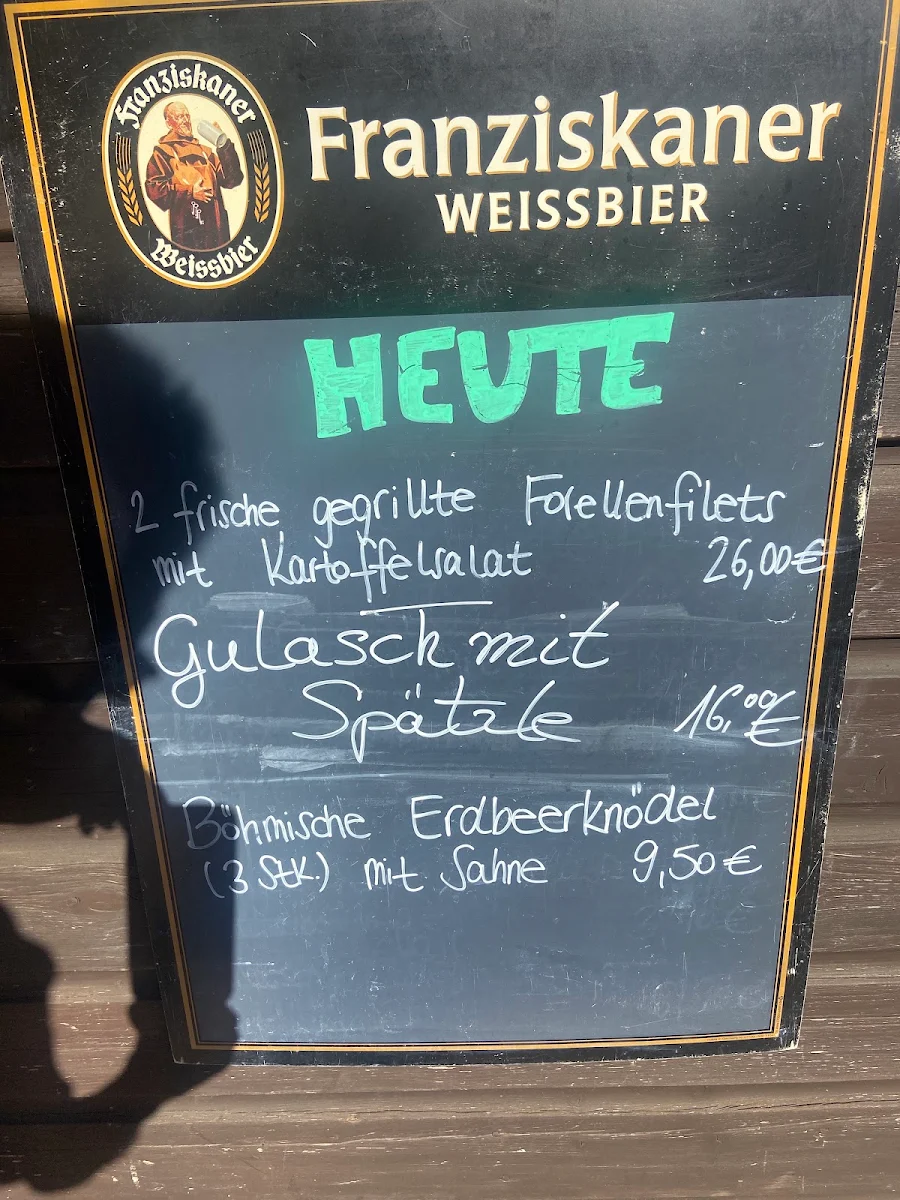 Franziskaner
Weissbier
Franziskaner
WEISSBIER
HEUTE
2 frische gegrillte Forellenfilets
mit Kartoffelsalat 26,00€
Gulasch mit
Spätzle 16,00€
Böhmische Erdbeerknödel
(3 Stk.) mit Sahne 9,50€